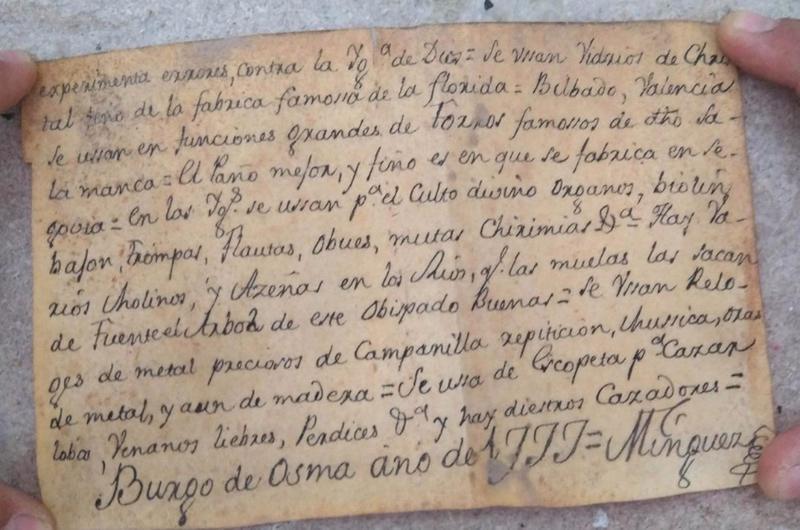 experimenta errores, contra la Yg.ª de Dios = Se ussan Vidrios de Chris
tal fino de la fabrica famossa de la florida = Bilbado, Valencia
se ussan en funciones grandes de torros famossos de dho Sa-
la manca = El Paño mejor, y fino es en que se fabrica en Se-
govia = En las Yg.s se ussan p.ª el Culto divino Organos, biolin,
bajon, trompas, Flautas, Obues, mutas Chirimias &.ª = Hay Va-
rios Molinos, y Azeñas en los Rios, q.e las muelas las sacan
de Fuente el Arbol de este Obispado Buenas = Se Ussan Relo-
ges de metal preciosos de Campanilla repiticion, Mussica,
de metal, y aun de madera = Se ussa de Escopeta p.ª Cazar
lobos, Venanos liebres, Perdices &.ª y hay diestros Cazadores =
Burgo de Osma año de 1777 = Minguez